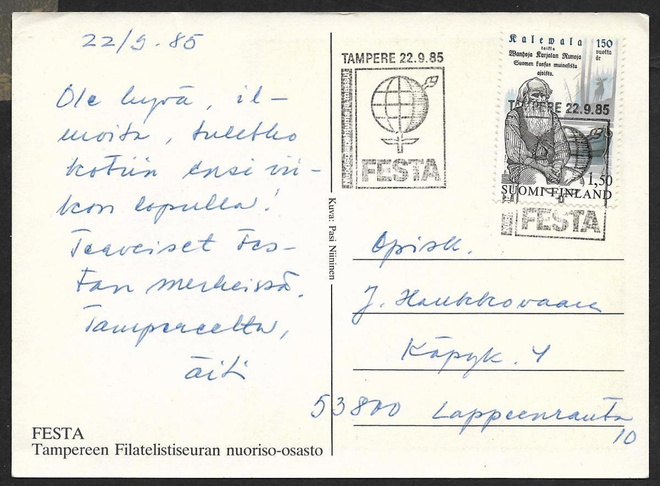 22/9. 85
Ole hyvä, il-
moita, tuletko
kotiin ensi vii-
kon lopulla!
Terveiset Fes-
tan merkeissä.
Tampereelta,
äiti
FESTA
Tampereen Filatelistiseuran nuoriso-osasto
Kuva: Pasi Niininen
TAMPERE 22.9.85
FESTA
Kalewala
taikka
Wanhoja Karjalan Runoja
Suomen kansan muinosista
ajoista.
150
vuotta
år
TAMPERE 22.9.85
1,50
SUOMI FINLAND
FESTA
Opisk.
J. Haukkovaara
Käpyk. 4
53800 Lappeenranta
10